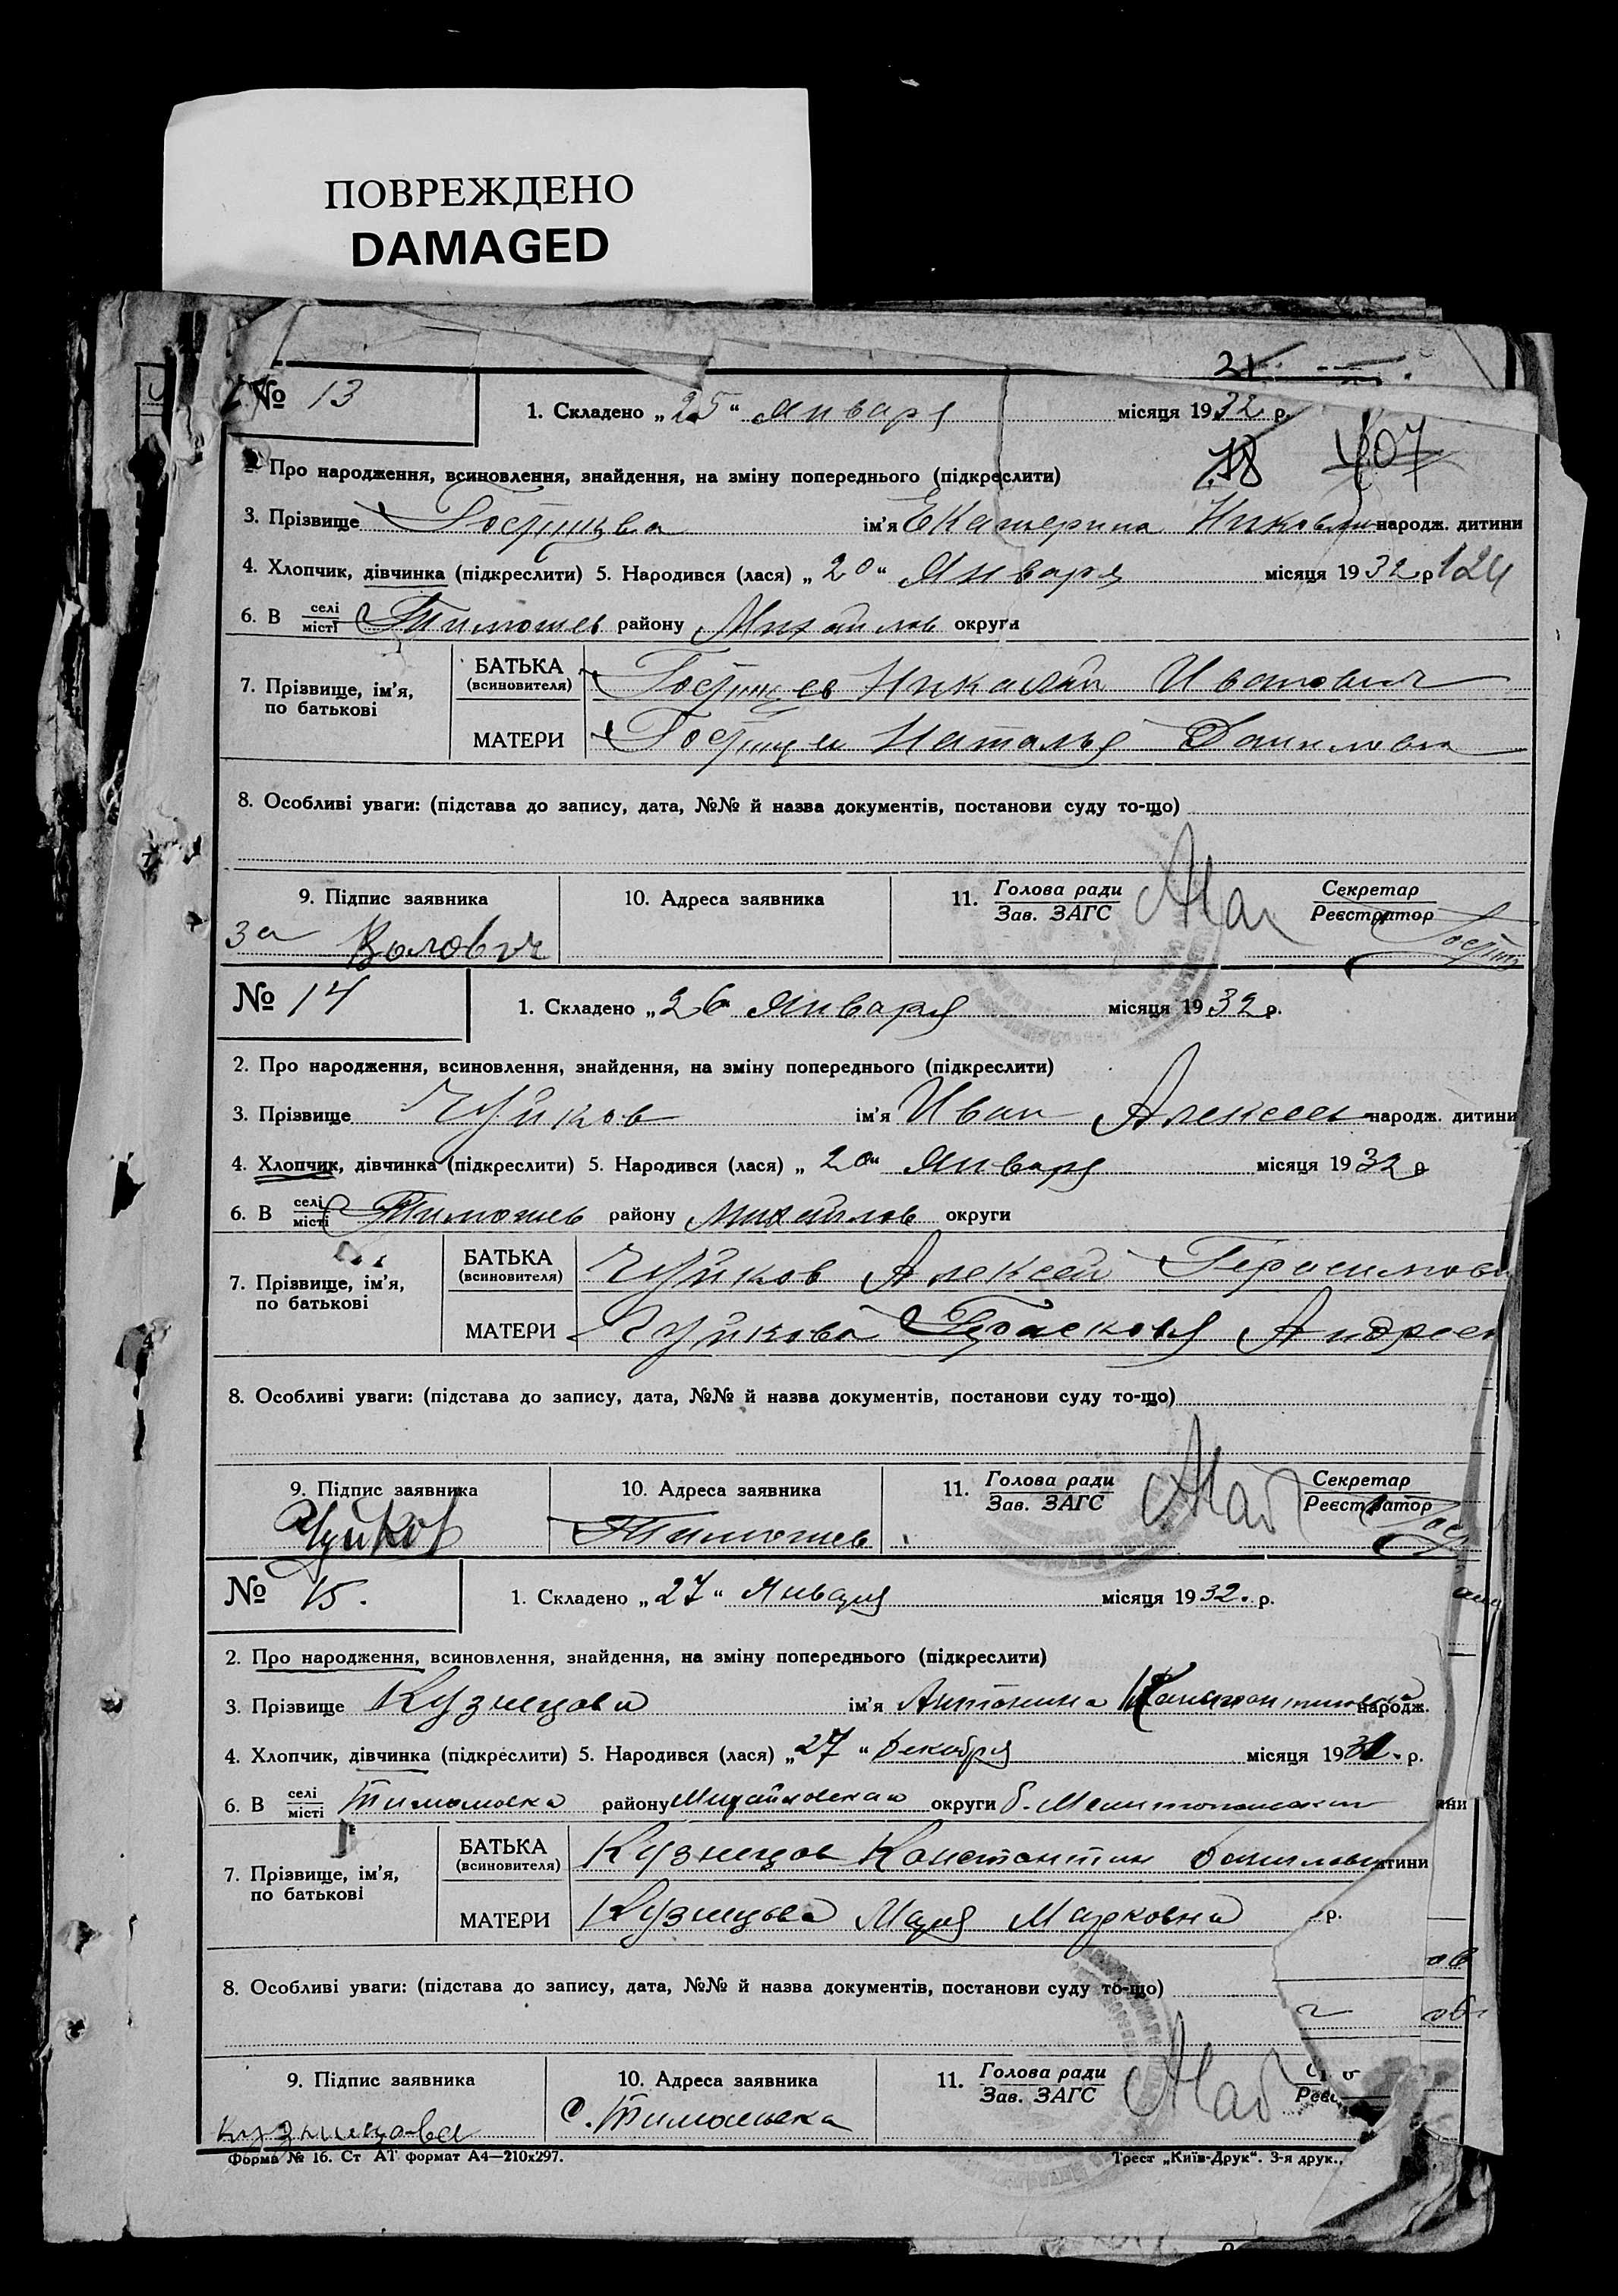 ПОВРЕЖДЕНО
DAMAGED
21
№ 13
1. Складено „25“ Января місяця 1932 р.
18 407
2. Про народження, всиновлення, знайдення, на зміну попереднього (підкреслити)
3. Прізвище ім'я Екатерина народж. дитини
4. Хлопчик, дівчинка (підкреслити) 5. Народився (лася) „20“ Января місяця 1932 р 124
6. В селі місті Тимошев району Михайлов округи
7. Прізвище, ім'я, по батькові
БАТЬКА (всиновителя) Николай Иванович
МАТЕРИ Наталья Даниловна
8. Особливі уваги: (підстава до запису, дата, №№ й назва документів, постанови суду то-що)
9. Підпис заявника 10. Адреса заявника 11. Голова ради Зав. ЗАГС Секретар Реєстратор
за Волович
№ 14
1. Складено „26“ Января місяця 1932 р.
2. Про народження, всиновлення, знайдення, на зміну попереднього (підкреслити)
3. Прізвище Чуйков ім'я Иван Алексеев народж. дитини
4. Хлопчик, дівчинка (підкреслити) 5. Народився (лася) „20“ Января місяця 1932 р
6. В селі місті Тимошев району Михайлов округи
7. Прізвище, ім'я, по батькові
БАТЬКА (всиновителя) Чуйков Алексей Герасимови
МАТЕРИ Чуйкова Прасковя Андреев
8. Особливі уваги: (підстава до запису, дата, №№ й назва документів, постанови суду то-що)
9. Підпис заявника 10. Адреса заявника 11. Голова ради Зав. ЗАГС Секретар Реєстратор
Чуйков Тимошев
№ 15.
1. Складено „27“ Января місяця 1932. р.
2. Про народження, всиновлення, знайдення, на зміну попереднього (підкреслити)
3. Прізвище Кузнецова ім'я Антонина Константиновна народж.
4. Хлопчик, дівчинка (підкреслити) 5. Народився (лася) „27“ Декабря місяця 1931. р.
6. В селі місті Тимошовка району Михайловская округи б. Мелитопольский
7. Прізвище, ім'я, по батькові
БАТЬКА (всиновителя) Кузнецов Константин Данилович
МАТЕРИ Кузнецова Мария Марковна р.
8. Особливі уваги: (підстава до запису, дата, №№ й назва документів, постанови суду то-що)
9. Підпис заявника 10. Адреса заявника 11. Голова ради Зав. ЗАГС
Кузницова с. Тимошовка
Форма № 16. Ст АТ формат А4—210х297. Трест „Київ-Друк“. 3-я друк.,